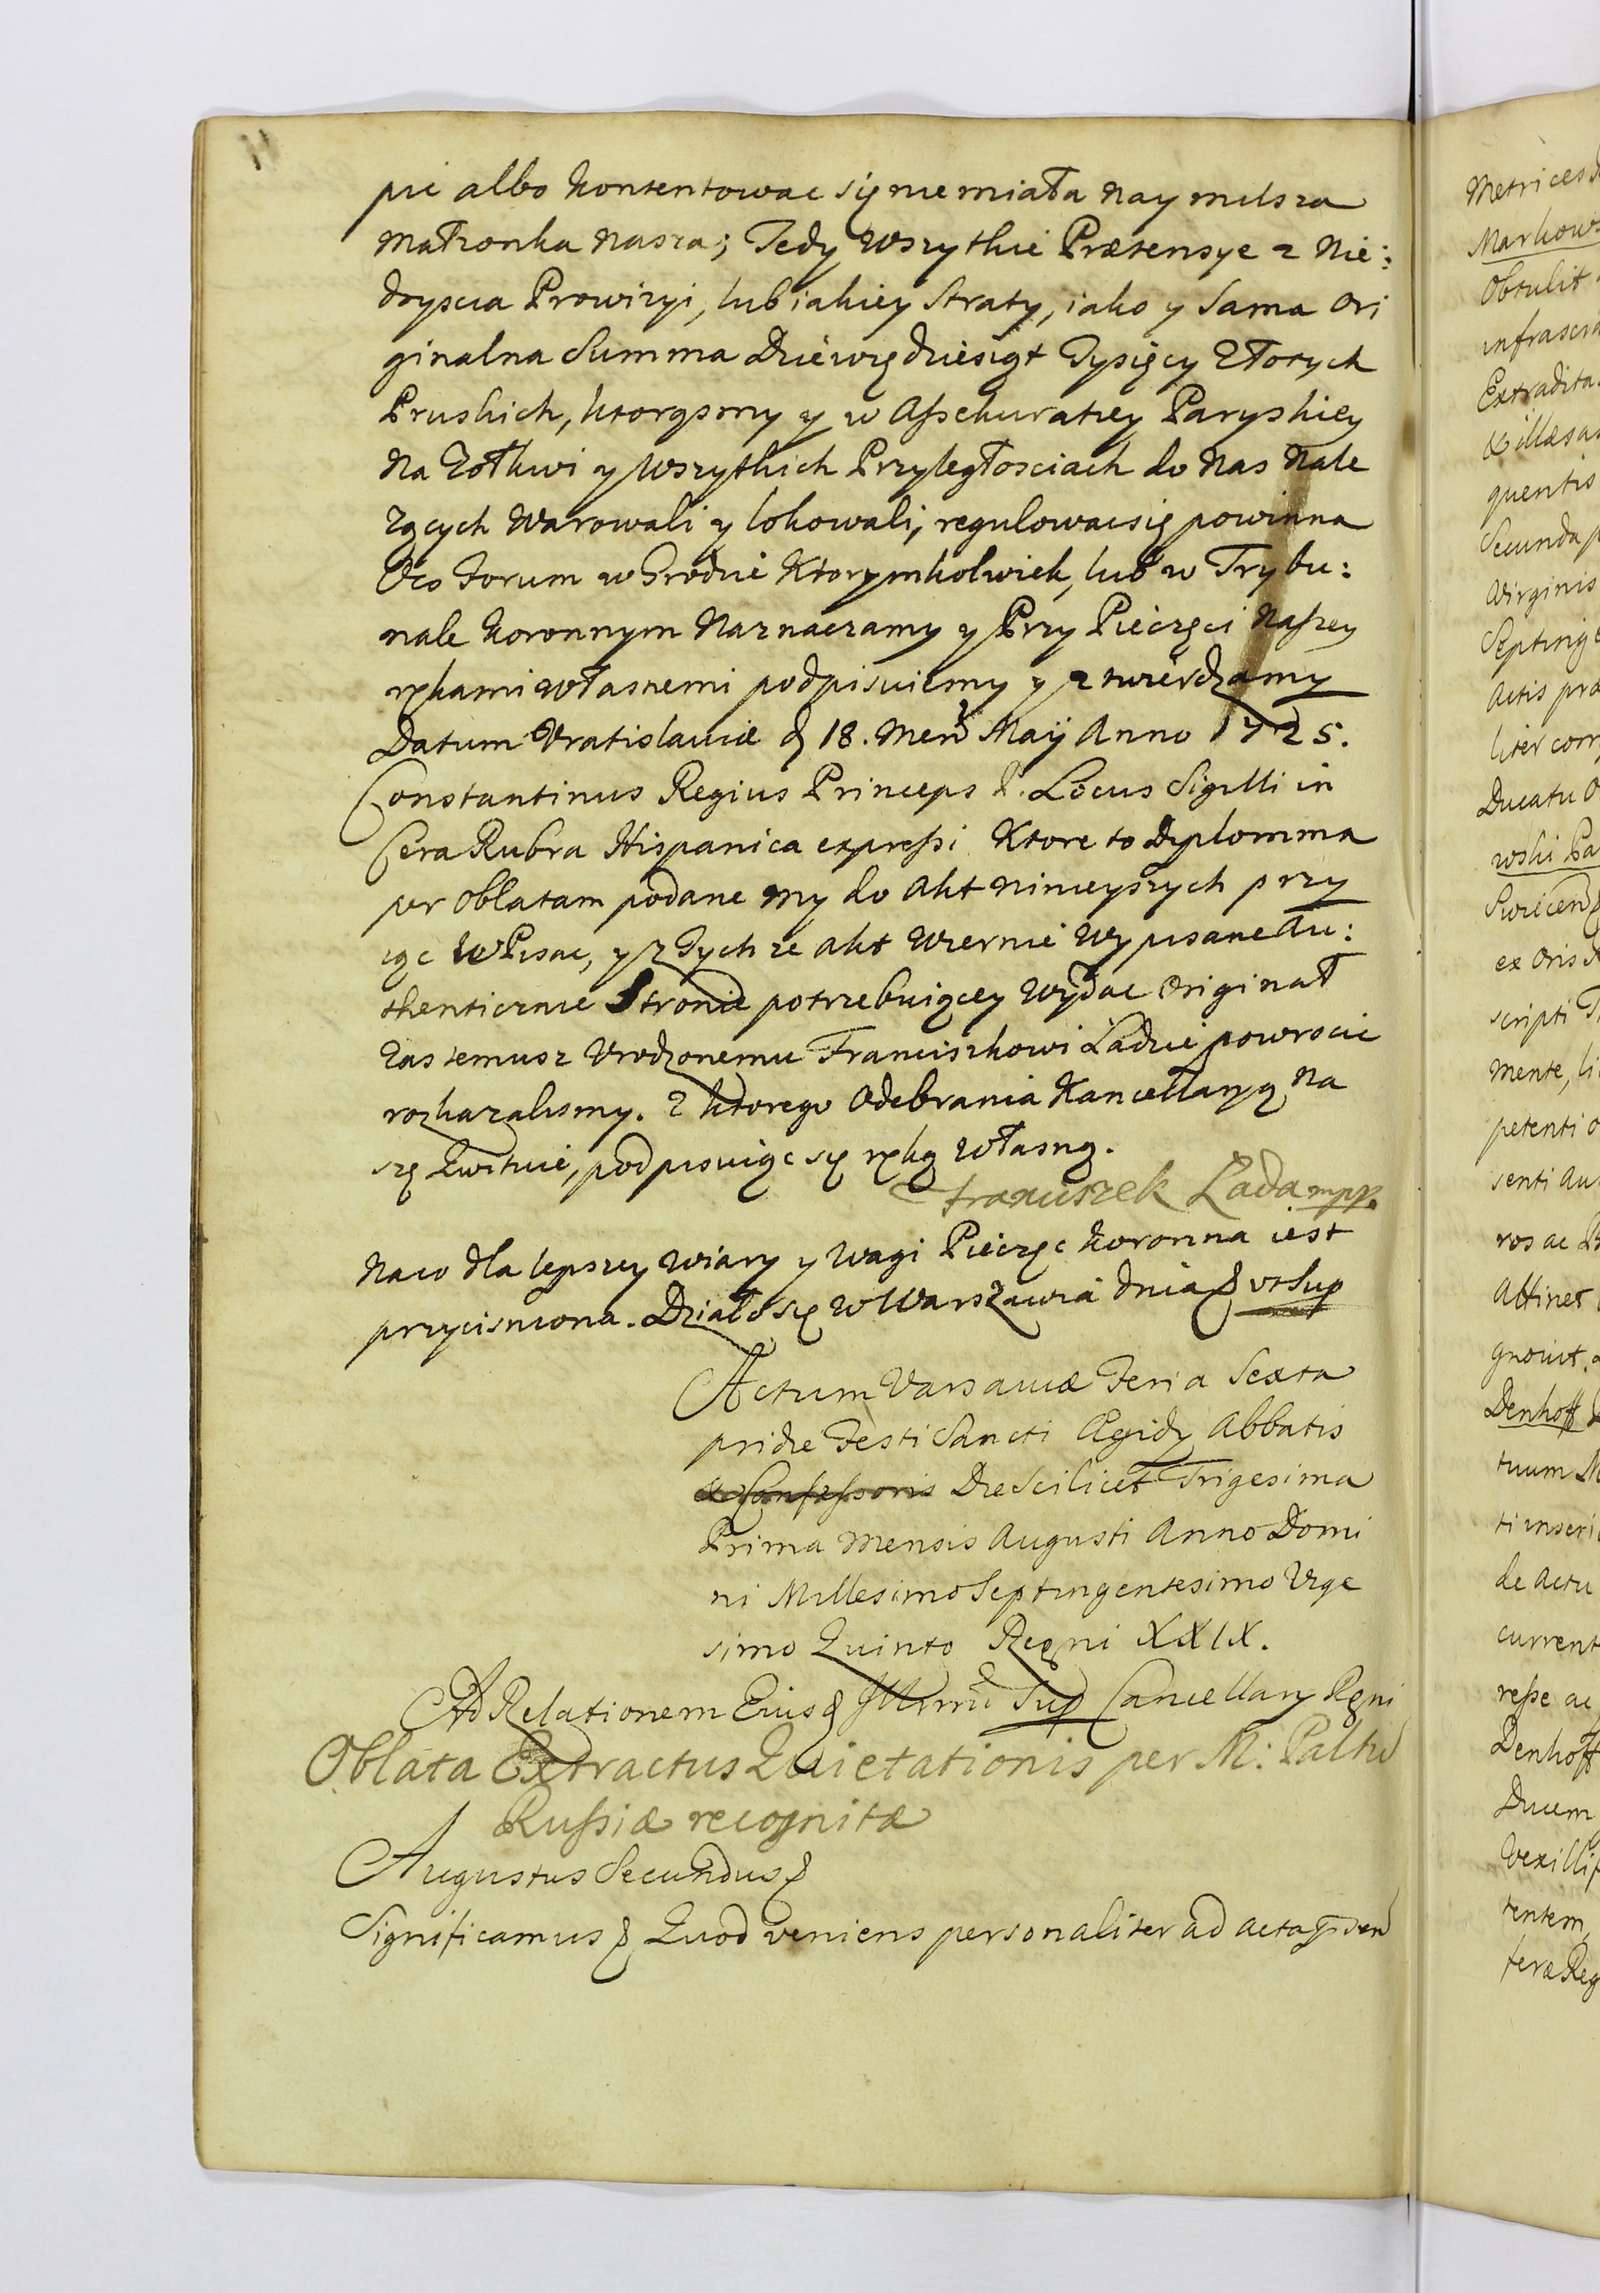 pic albo kontentowac się nie miała Naymilsza
Małzonka Nasza; Tedy Wszytkie Prætensye z Nie:
doyscia Prowizyi, lub iakiey Straty, iako y Sama Ori
ginalna Summa Dziewiędziesiąt Tysięcy Złotych
Pruskich, ktorąsmy y w Assekuratiey Paryskiey
Na Zołkwi y Wszytkich Przyległosciach do Nas Nale
zących Warowali y lokowali, regulowac się powinna
O co Forum w Grodzie Ktorymkolwiek, lub w Trybu:
nale Koronnym Naznaczamy y Przy Pieczęci Naszey
rękami własnemi podpisuiemy y ztwierdzamy
Datum Vratislaviæ d 18. Mens Maÿ Anno 1725.
Constantinus Regius Princeps &. Locus Sigilli in
Cera Rubra Hispanica expressi Ktore to Dyplomma
per Oblatam podane my do Akt Ninieyszych przy
iąc W Pisac, y z Tychze Akt Wiernie Wypisane Au:
thenticznie Stronie potrzebuiącey Wydac Originał
zas temusz Urodzonemu Franciszkowi Ladzie powrocic
rozkazalismy. Z ktorego Odebrania Kancellaryą Na
szę Kwituie, podpisuiąc się ręką Własną.
Franciszek Lada mpp.
Na co dla lepszey Wiary y Wagi Pieczęc Koronna iest
przycisniona. Działo się W Warszawie dnia & vt Sup
Actum Varsaviæ Feria Sexta
pridie Festi Sancti Ægidy Abbatis
& Confessoris Die Scilicet Trigesima
Prima Mensis Augusti Anno Domi
ni Millesimo Septingentesimo Vige
simo Quinto Regni XXIX.
Ad Relationem Eiusd Illrmi Sup Cancellary Regni
Oblata Extractus Quietationis per M: Paltm
Russiæ recognitæ
Augustus Secundus &
Significamus & Quod veniens personaliter ad acta psen
Metrices
Markows
Obtulit
infrascri
Extradita
& illæsa
quentis
Secunda p
Virginis
Septinge
Actis præ
liter corr
Ducatu O
wski Pa
Swiecen
ex Oris
scripti T
mente, li
petenti o
senti au
ros ac B
Attinet
gnovit.
Denhoff
tuum M
ti inseri
de Actu
current
resse ac
Denhoff
Ducem
Vexillif
tentem,
teræ Reg